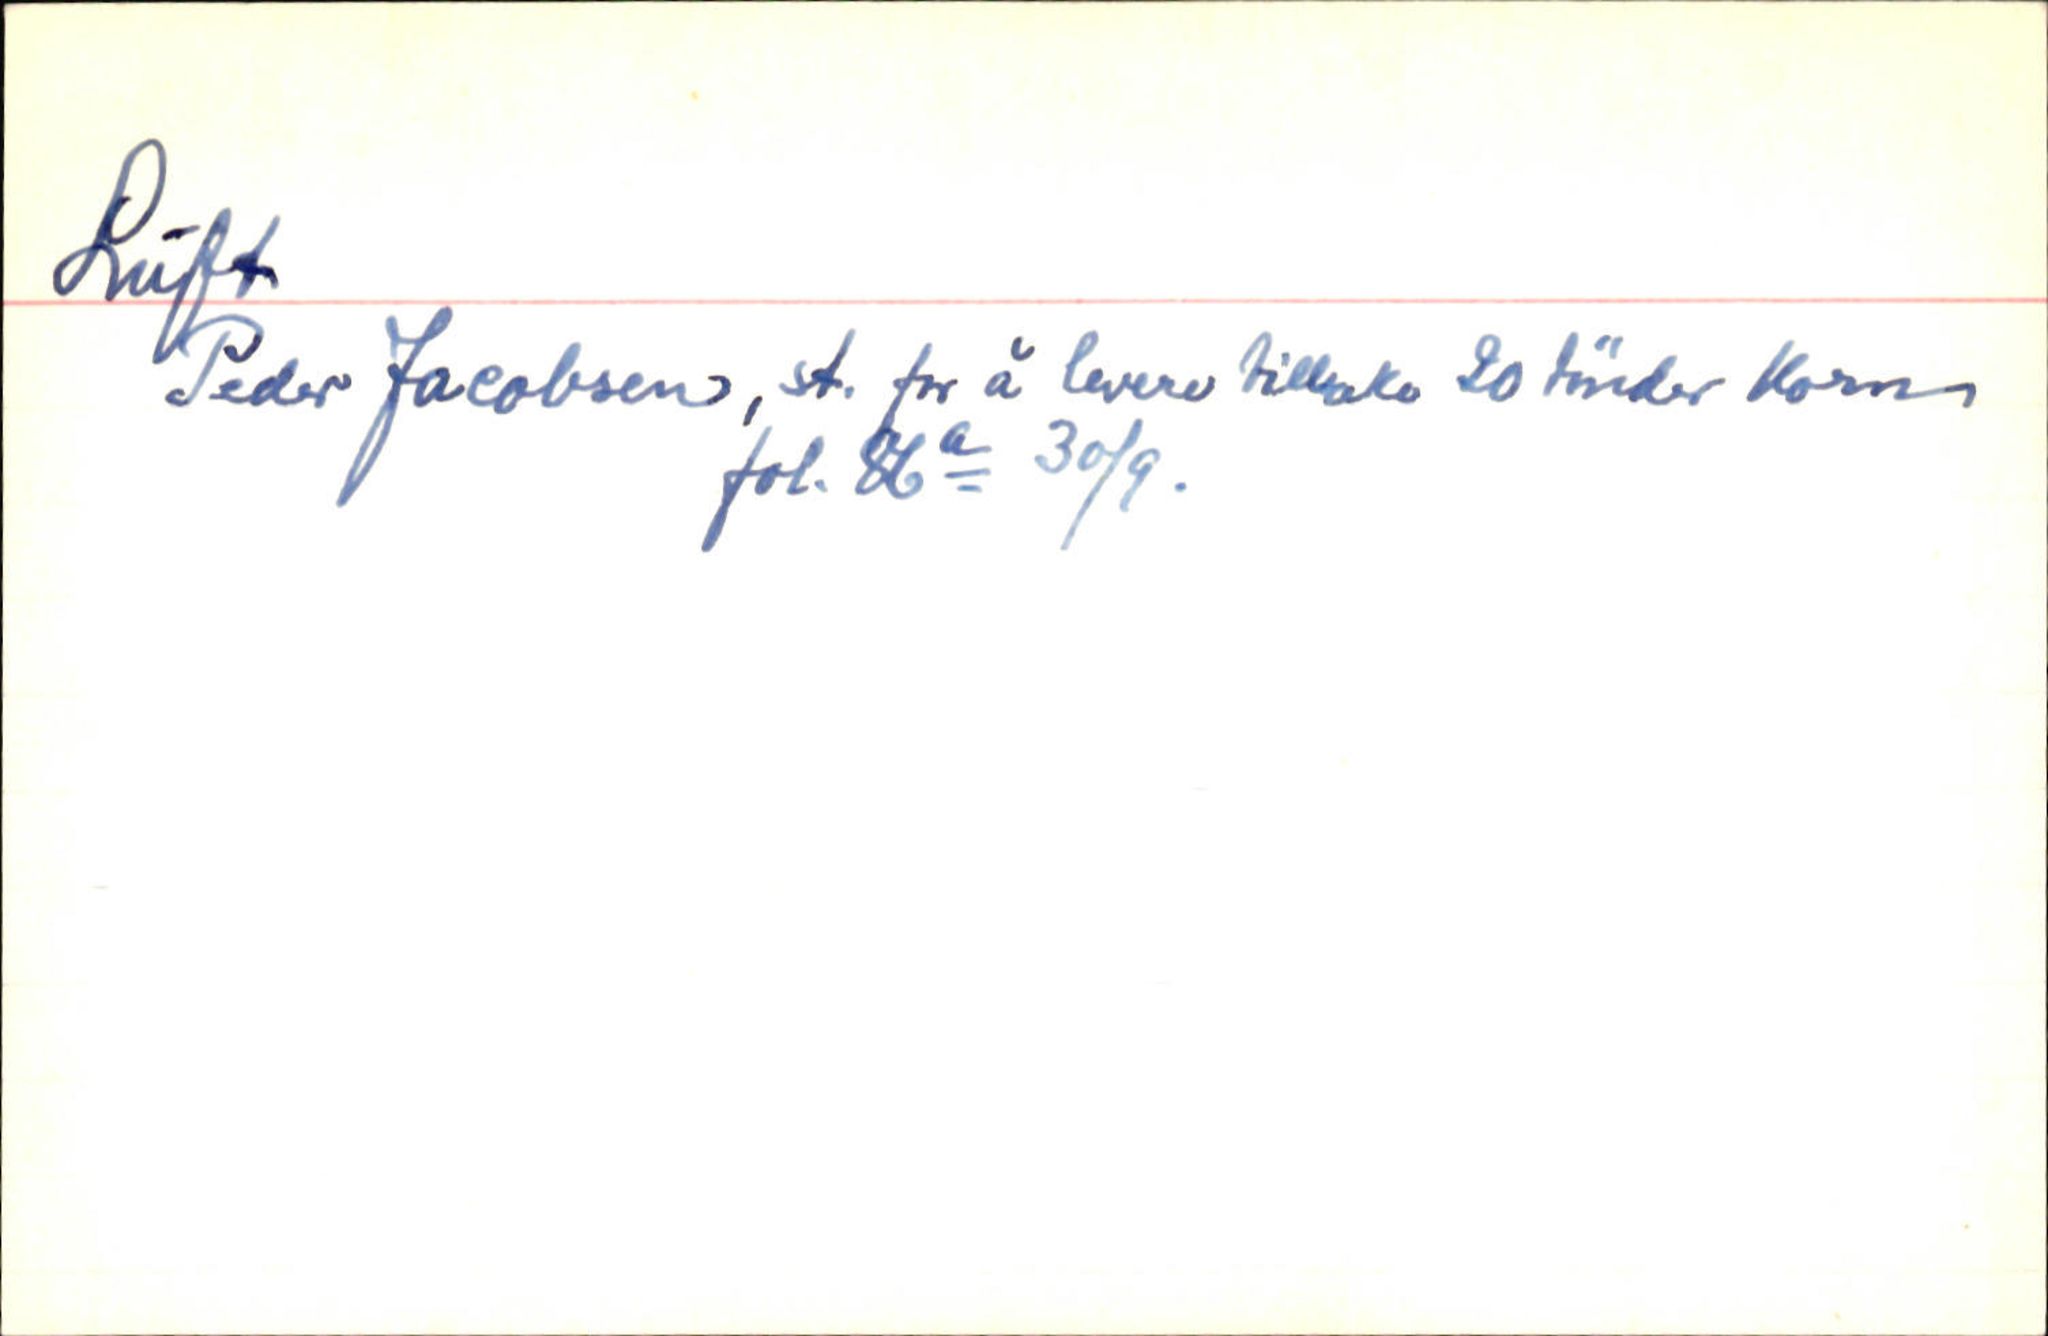 Luft
Peder Jacobsen, st. for å levere tilbake 20 tünder Korn
fol. 86 a 30/9.